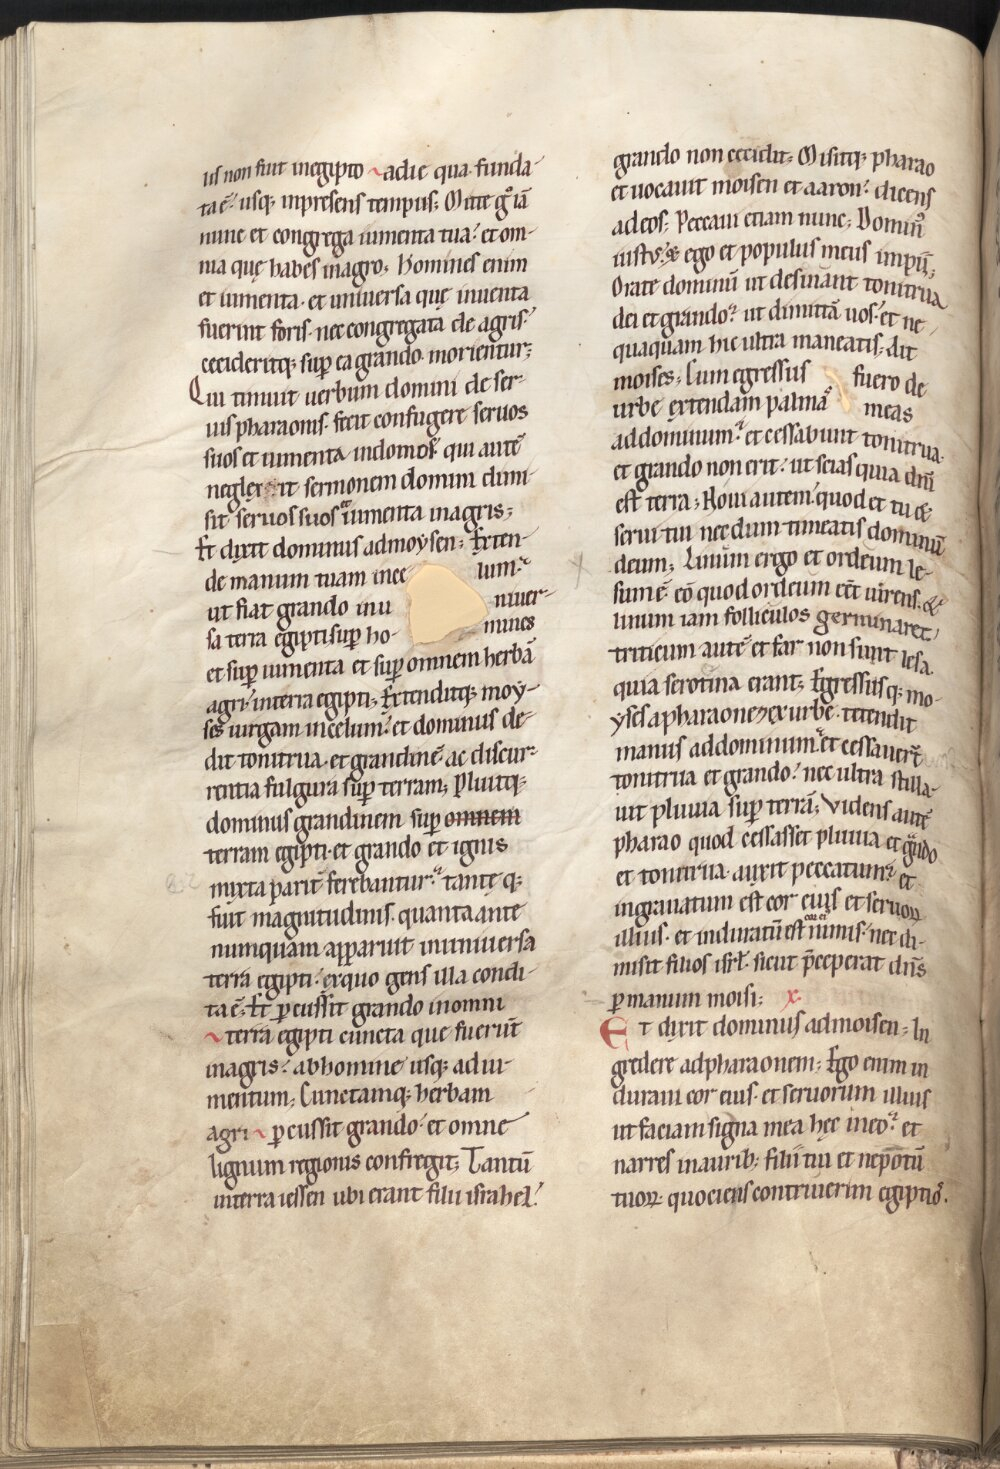 lis non fuit inegipto adie qua funda-
ta ē usq; inpresens tempus; Mitte gͦ iā
nunc et congrega iumenta tua et om-
nia quę habes inagro; homines enim
et iumenta et uniuersa quę inuenta
fuerint foris nec congregata de agris
cecideritq; suꝑ ea grando morientur;
Qui timuit uerbum domini de ser-
uis pharaonis fecit confugere seruos
suos et iumenta indomos qui autē
neglexerit sermonem domini dimi-
sit seruos suos et iumenta inagris;
Et dixit dominus admoysen; Exten-
de manum tuam ince lum
ut fiat grando inu niuer-
sa terra egipti suꝑ ho- mines
et suꝑ iumenta et suꝑ omnem herbā
agri interra egipti; Extenditq; moy-
ses uirgam incelum et dominus de-
dit tonitrua et grandinē ac discur-
rentia fulgura suꝑ terram; Pluitq;
dominus grandinem suꝑ omnem
terram egipti et grando et ignis
mixta pariť ferebantur tantę q;
fuit magnitudinis quanta ante
numquam apparuit inuniuersa
terra egipti exquo gens illa condi-
ta ē; Et ꝑcussit grando inomni
terra egipti cuncta que fuerūt
inagris abhomine usq; adiu-
mentum; Cunctamq; herbam
agri ꝑcussit grando et omne
lignum regionis confregit; Tantū
interra iessen ubi erant filii israhel
grando non cecidit; Misitq; pharao
et uocauit moisen et aaron dicens
adeos; Peccaui etiam nunc; Dominꝰ
iustus ego et populus meus impii;
Orate dominū ut desinant tonitrua
dei et grando ut dimittā uos et ne
quaquam hic ultra maneatis; Ait
moises; Cum egressus fuero de
urbe extendam palmas meas
addominum et cessabunt tonitrua
et grando non erit ut scias quia dn̄i
est terra; Noui autem quod et tu &
serui tui necdum timeatis dominū
deum; Linum ergo et ordeum le-
sum ē eō quod ordeum eēt uirens &
linum iam folliculos germinaret
triticum autē et far non sunt lesa
quia serotina erant; Egressusq; mo-
yses apharaone ⁊ exurbe tetendit
manus addominum et cessauerť
tonitrua et grando nec ultra stilla-
uit pluuia suꝑ terrā; Videns autē
pharao quod cessasset pluuia et gͣndo
et tonitrua auxit peccatum et
ingrauatum est cor eius et seruoꝝ
illius et induratū est cor ei nimis nec di-
misit filios isrł sicut p̄ceperat dn̄s
ꝑ manum moisi; x
Et dixit dominus admoisen; In
gredere adpharaonem; Ego enim in
duraui cor eius et seruorum illius
ut faciam signa mea hęc ineo et
narres inaurib; filii tui et nepotū
tuoꝝ quociens contriuerim egiptios